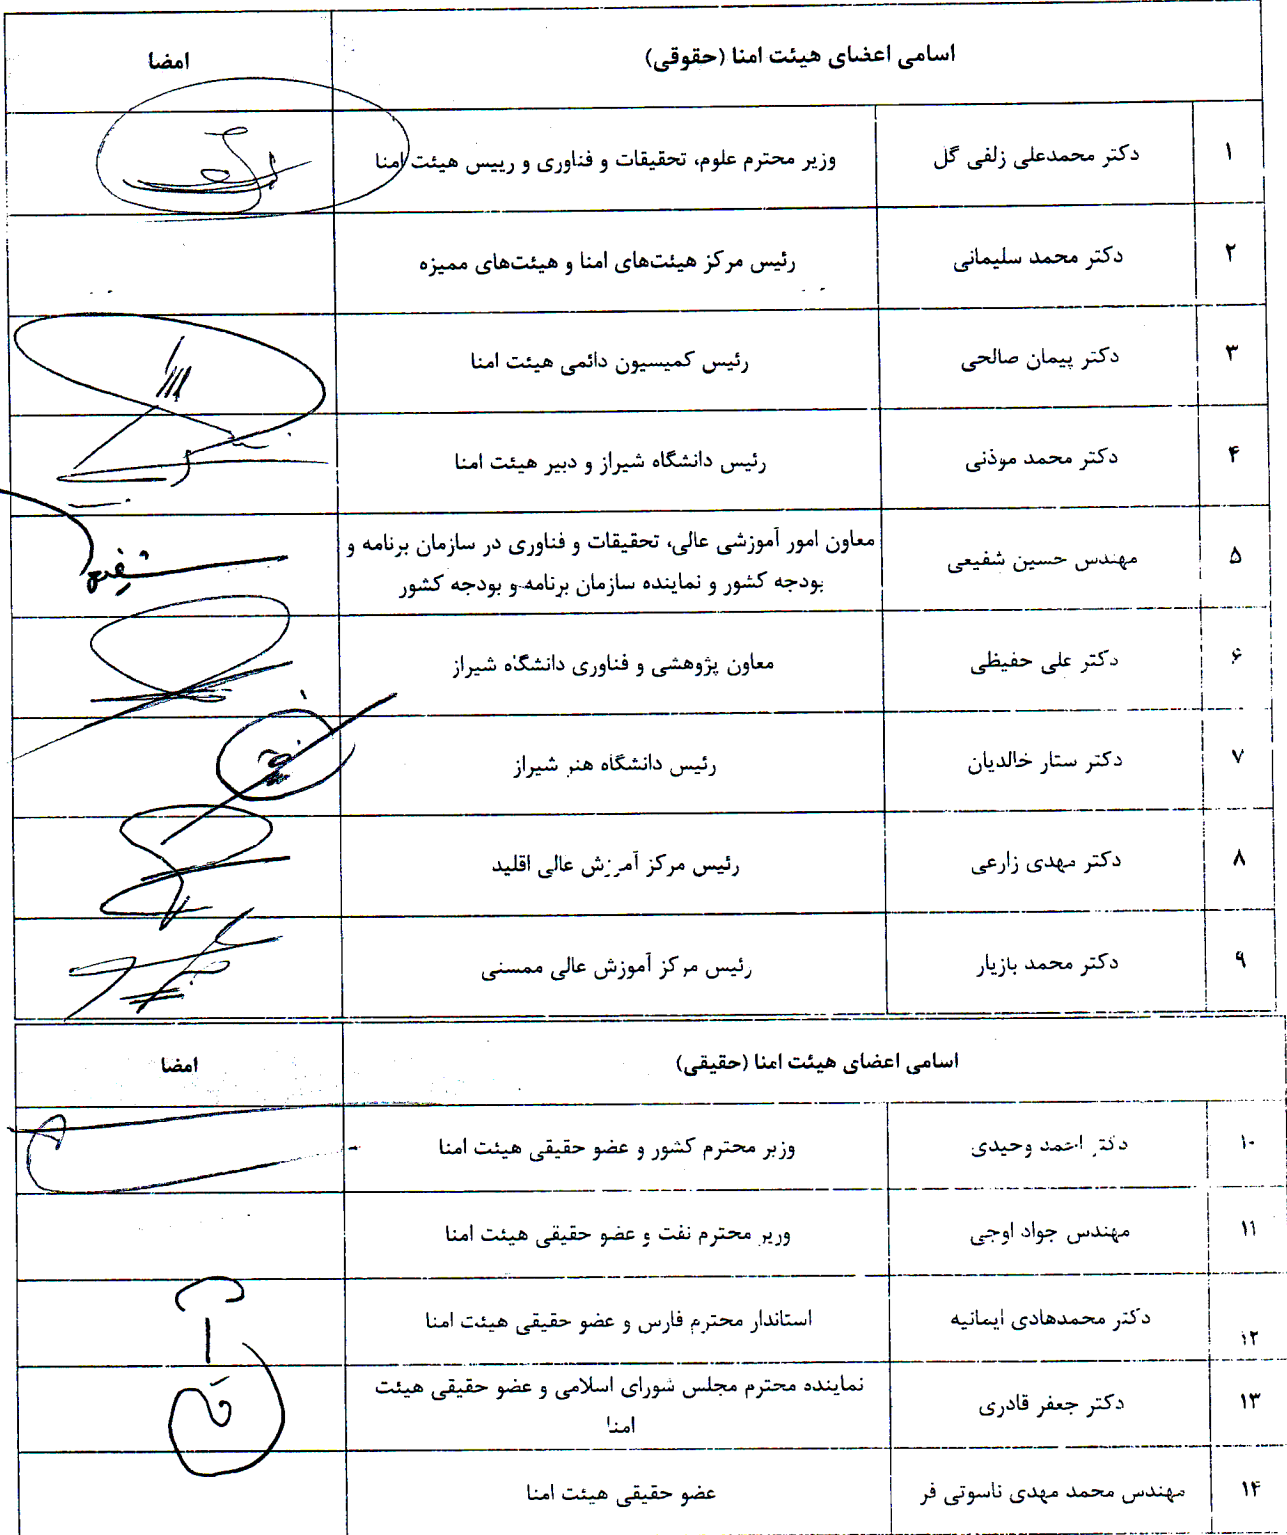 اسامی اعضای هیئت امنا (حقوقی) امضا
۱ دکتر محمدعلی زلفی گل وزیر محترم علوم، تحقیقات و فناوری و رییس هیئت امنا
۲ دکتر محمد سلیمانی رئیس مرکز هیئت‌های امنا و هیئت‌های ممیزه
۳ دکتر پیمان صالحی رئیس کمیسیون دائمی هیئت امنا
۴ دکتر محمد موذنی رئیس دانشگاه شیراز و دبیر هیئت امنا
۵ مهندس حسین شفیعی معاون امور آموزشی عالی، تحقیقات و فناوری در سازمان برنامه و
بودجه کشور و نماینده سازمان برنامه و بودجه کشور
۶ دکتر علی حفیظی معاون پژوهشی و فناوری دانشگاه شیراز
۷ دکتر ستار خالدیان رئیس دانشگاه هنر شیراز
۸ دکتر مهدی زارعی رئیس مرکز آموزش عالی اقلید
۹ دکتر محمد بازیار رئیس مرکز آموزش عالی ممسنی
اسامی اعضای هیئت امنا (حقیقی) امضا
۱۰ دکتر احمد وحیدی وزیر محترم کشور و عضو حقیقی هیئت امنا
۱۱ مهندس جواد اوجی وزیر محترم نفت و عضو حقیقی هیئت امنا
۱۲ دکتر محمدهادی ایمانیه استاندار محترم فارس و عضو حقیقی هیئت امنا
۱۳ دکتر جعفر قادری نماینده محترم مجلس شورای اسلامی و عضو حقیقی هیئت
امنا
۱۴ مهندس محمد مهدی ناسوتی فر عضو حقیقی هیئت امنا